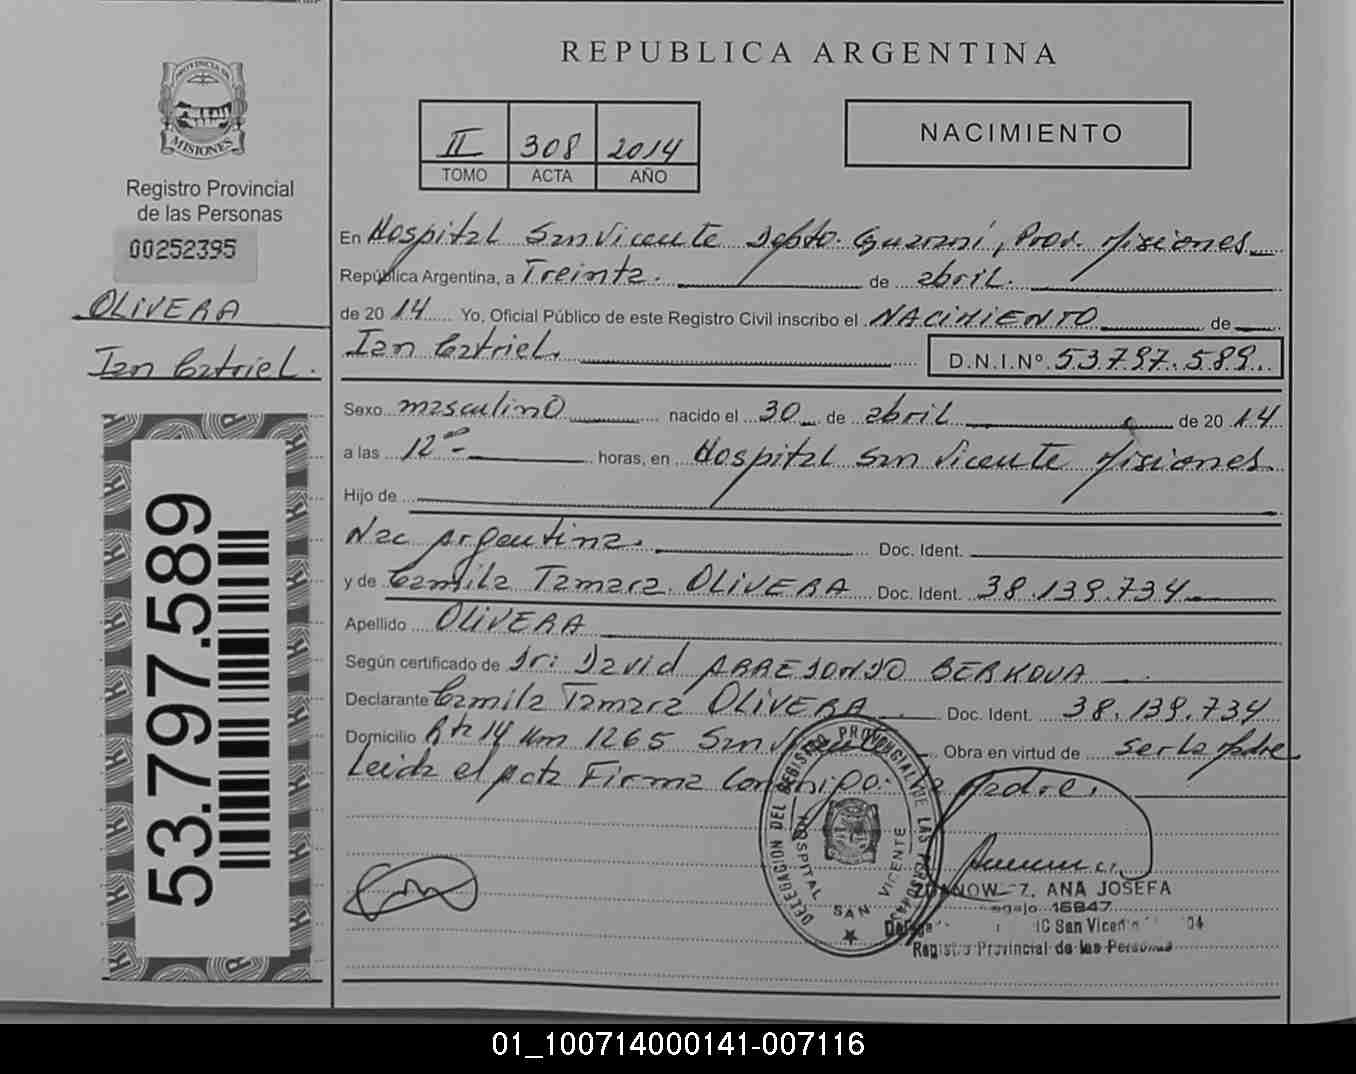 REPUBLICA ARGENTINA
PROVINCIA DE
MISIONES
Registro Provincial
de las Personas
00252395
OLIVERA
Ian Eztriel.
53.797.589
II 308 2014
TOMO ACTA AÑO
NACIMIENTO
En Hospital San Vicente Depto. Guaraní, Prov. Misiones
República Argentina, a Treinta. de abril.
de 20 14 Yo, Oficial Público de este Registro Civil inscribo el NACIMIENTO de
Ian Eztriel. D.N.I.Nº 53.797.589
Sexo masculino nacido el 30 de abril de 20 14
a las 12 horas, en Hospital San Vicente Misiones
Hijo de
Nac Argentina. Doc. Ident.
y de Camila Tamara OLIVERA Doc. Ident. 38.139.734
Apellido OLIVERA
Según certificado de Dr: David ARREDONDO BERKOVA
Declarante Camila Tamara OLIVERA Doc. Ident. 38.139.734
Domicilio Rta 14 Km 1265 San Obra en virtud de ser la Madre
Leida el Acta Firma Conmigo: Madre.
DELEGACION DEL REGISTRO PROVINCIAL DE LAS PERSONAS
HOSPITAL SAN VICENTE
ANA JOSEFA
16847
San Vicen
Registro Provincial de las Personas
01_100714000141-007116